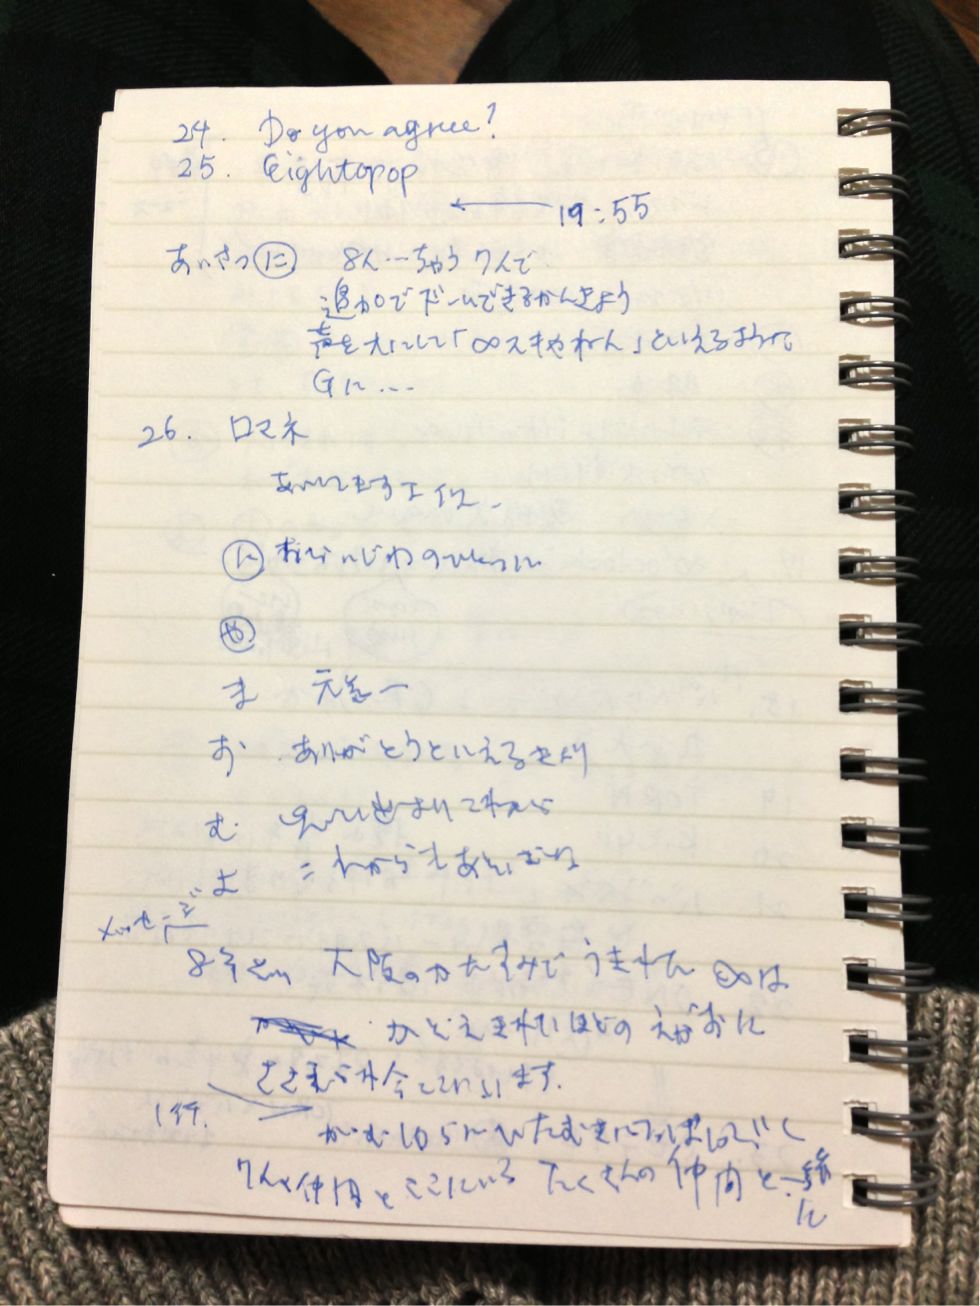 24. Do you agree?
25. Eightopop
← 19:55
あいさつ に 8人…ちゃう 7人で
追加でドームできるかんきょう
声を大にして「∞スキやねん」といえるような
Gに…
26. ロマネ
あいしてますよ
に おでこじわのひとつに
や
ま 元気ー
お ありがとうといえる
む
よ これからも
メッセージ
8年 大阪のかたすみでうまれた ∞は
かぞえきれないほどのえがおに
ささえられ今 います.
1行. がむしゃらにひたむきに
7人の仲間とここにいるたくさんの仲間と一緒
に